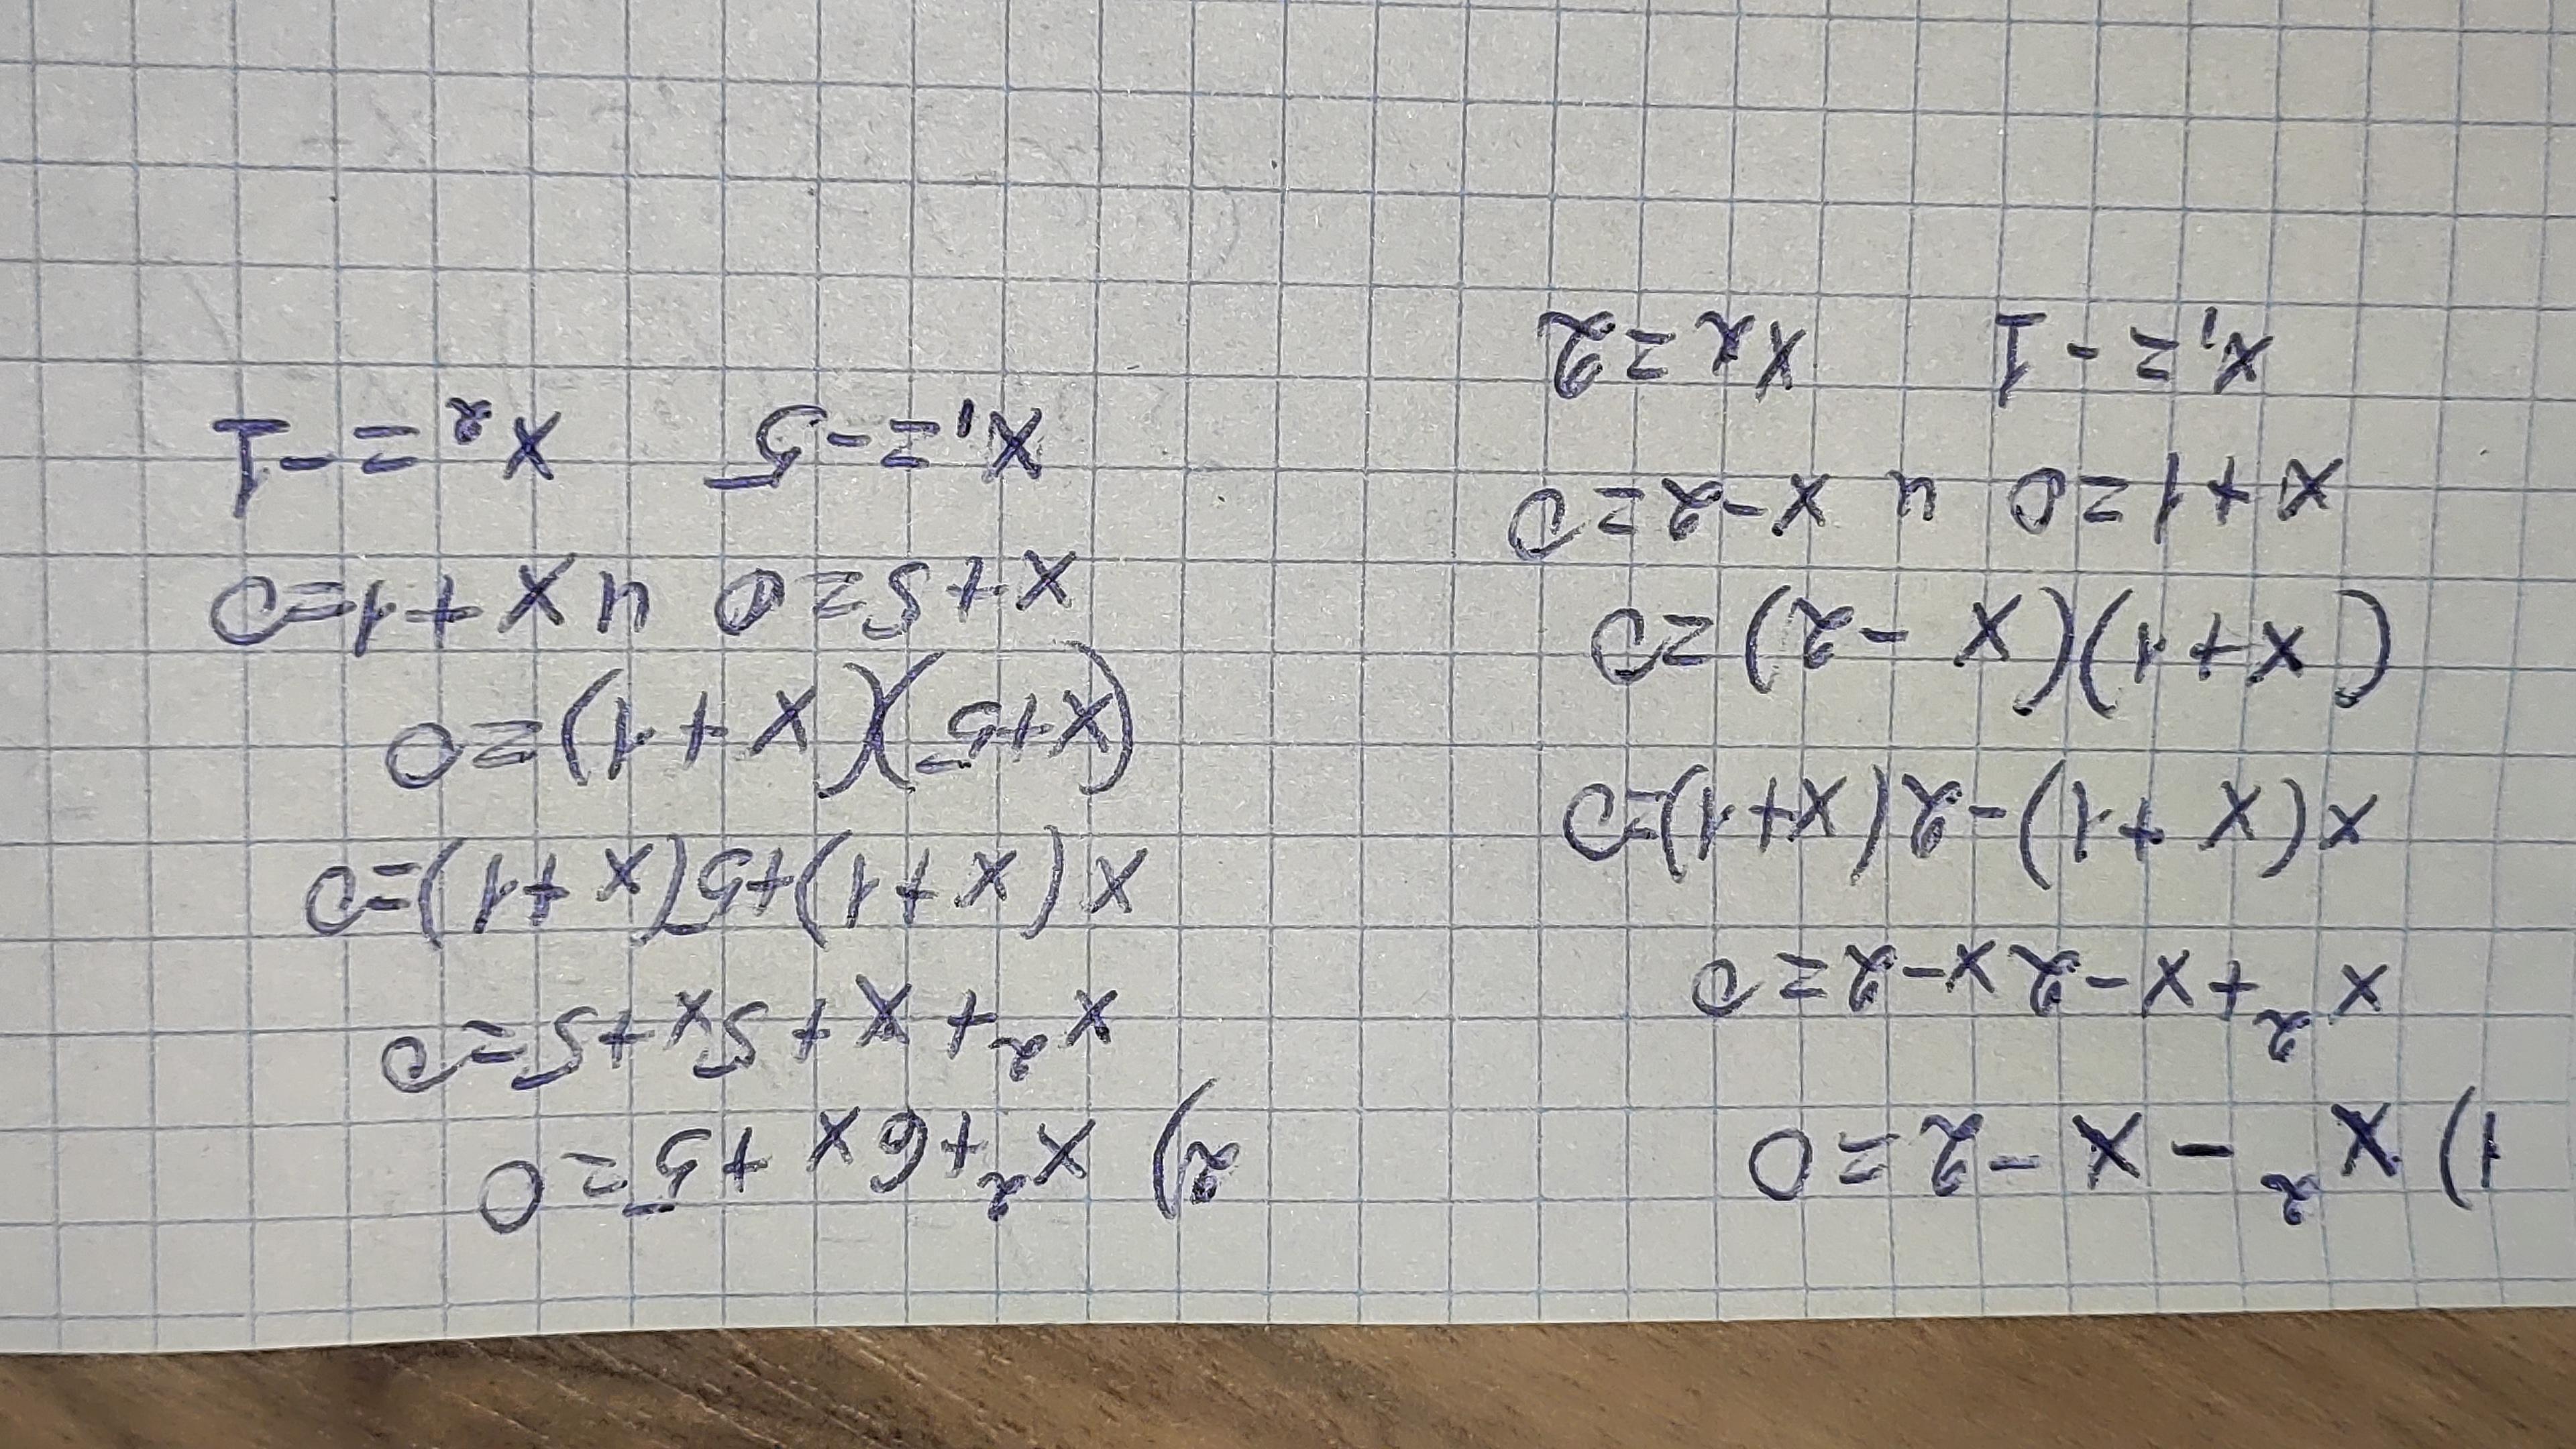 1) x² - x - 2 = 0
x² + x - 2x - 2 = 0
x(x + 1) - 2(x + 1) = 0
(x + 1)(x - 2) = 0
x + 1 = 0 и x - 2 = 0
x₁ = -1 x₂ = 2
2) x² + 6x + 5 = 0
x² + x + 5x + 5 = 0
x(x + 1) + 5(x + 1) = 0
(x + 5)(x + 1) = 0
x + 5 = 0 и x + 1 = 0
x₁ = -5 x₂ = -1